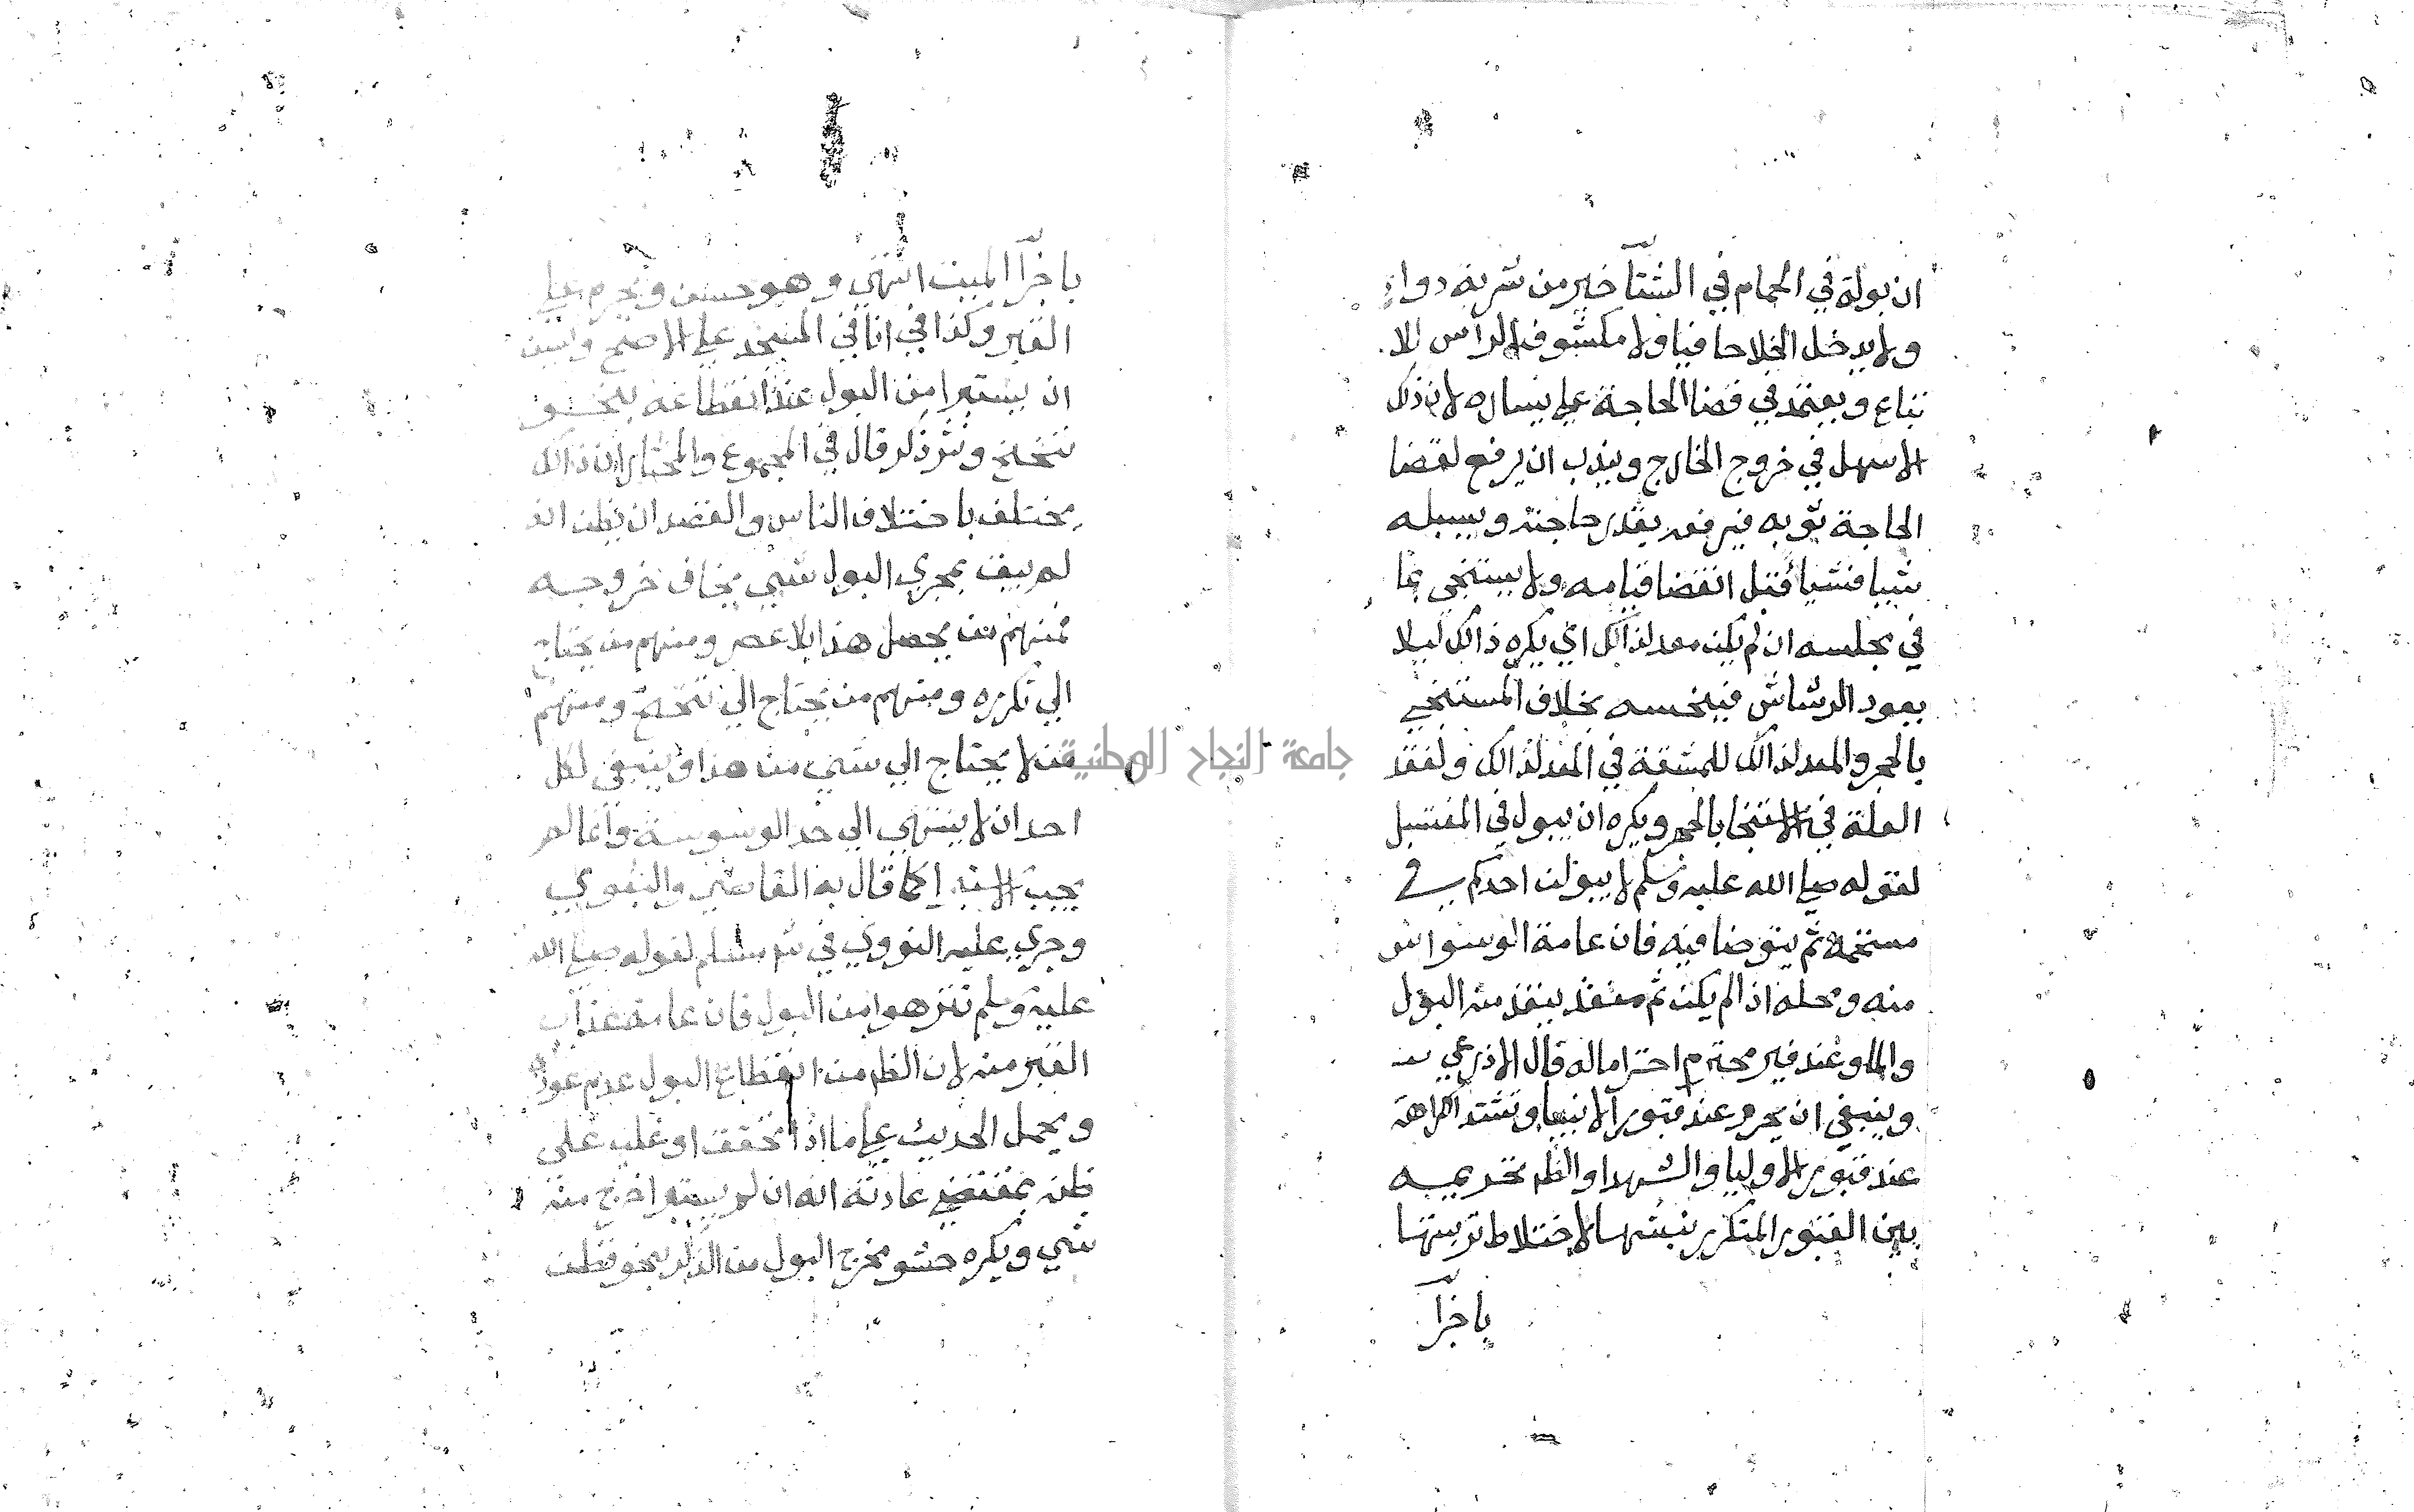 ان بولة في الحمام في الشتآ خير من شربة دواءٍ
ولا يدخل الخلا حافيا ولا مكشوف الراس للا
تباع ويعتمد في قضا الحاجة علي يساره لان ذلك
الاسهل في خروج الخارج ويندب ان يرفع لقضا
الحاجة ثوبه فيرفعه بقدر حاجته ويسبله
شيا فشيا قبل انقضا قيامه ولا يستنجي بما
في مجلسه ان لم يكن معد لذالك اي يكره ذالك ليلا
يعود الرشاش فينجسه بخلاف المستنجي
بالحجر والمعد لذالك للمشقة في المعد لذالك ولفقد
العلة في الاستنجا بالحجر ويكره ان يبول في المغتسل
لقوله صلي الله عليه وسلم لا يبولن احدكم في
مستحمه ثم يتوضا فيه فان عامة الوسواس
منه ومحله اذا لم يكن ثم منفذ ينفذ منه البول
والما وعند قبر محترم احتراما له قال الاذرعي
وينبغي ان يحرم عند قبور الانبيا وتشتد الكراهة
عند قبور الاوليا والشهدا والظهر تحريمه
بين القبور المتكرر نبشها لاختلاط تربتها
باجزآ
باجزآ الميت انتهي وهو حسن ويحرم علي
القبر وكذا في انا في المسجد علي الاصح ويسن
ان يستبرا من البول عند انقطاعه بنحو
تنحنح ونثر ذكر قال في المجموع والمختار ان ذالك
يختلف باختلاف الناس والقصد ان يظن انه
لم يبق بمجري البول شي يخاف خروجه
فمنهم من يحصل هذا بلا عصر ومنهم من يحتاج
الي تكريره ومنهم من يحتاج الي تنحنح ومنهم
من لا يحتاج الي شي من هذا وينبغي لكل
احد ان لا ينتهي الي حد الوسوسة وانما لم
يجب الاستبرا كما قال به القاضي والبغوي
وجري عليه النووي في شرح مسلم لقوله صلي الله
عليه وسلم تنزهوا من البول فان عامة عذاب
القبر منه لان الظهر من انقطاع البول عدم عوده
ويحمل الحديث علي ما اذا تحقق او غلب علي
ظنه بمقتضي عادته انه ان لم يستبرا خرج منه
شي ويكره حشو مخرج البول من الذكر بنحو قطن
جامعة النجاح الوطنية